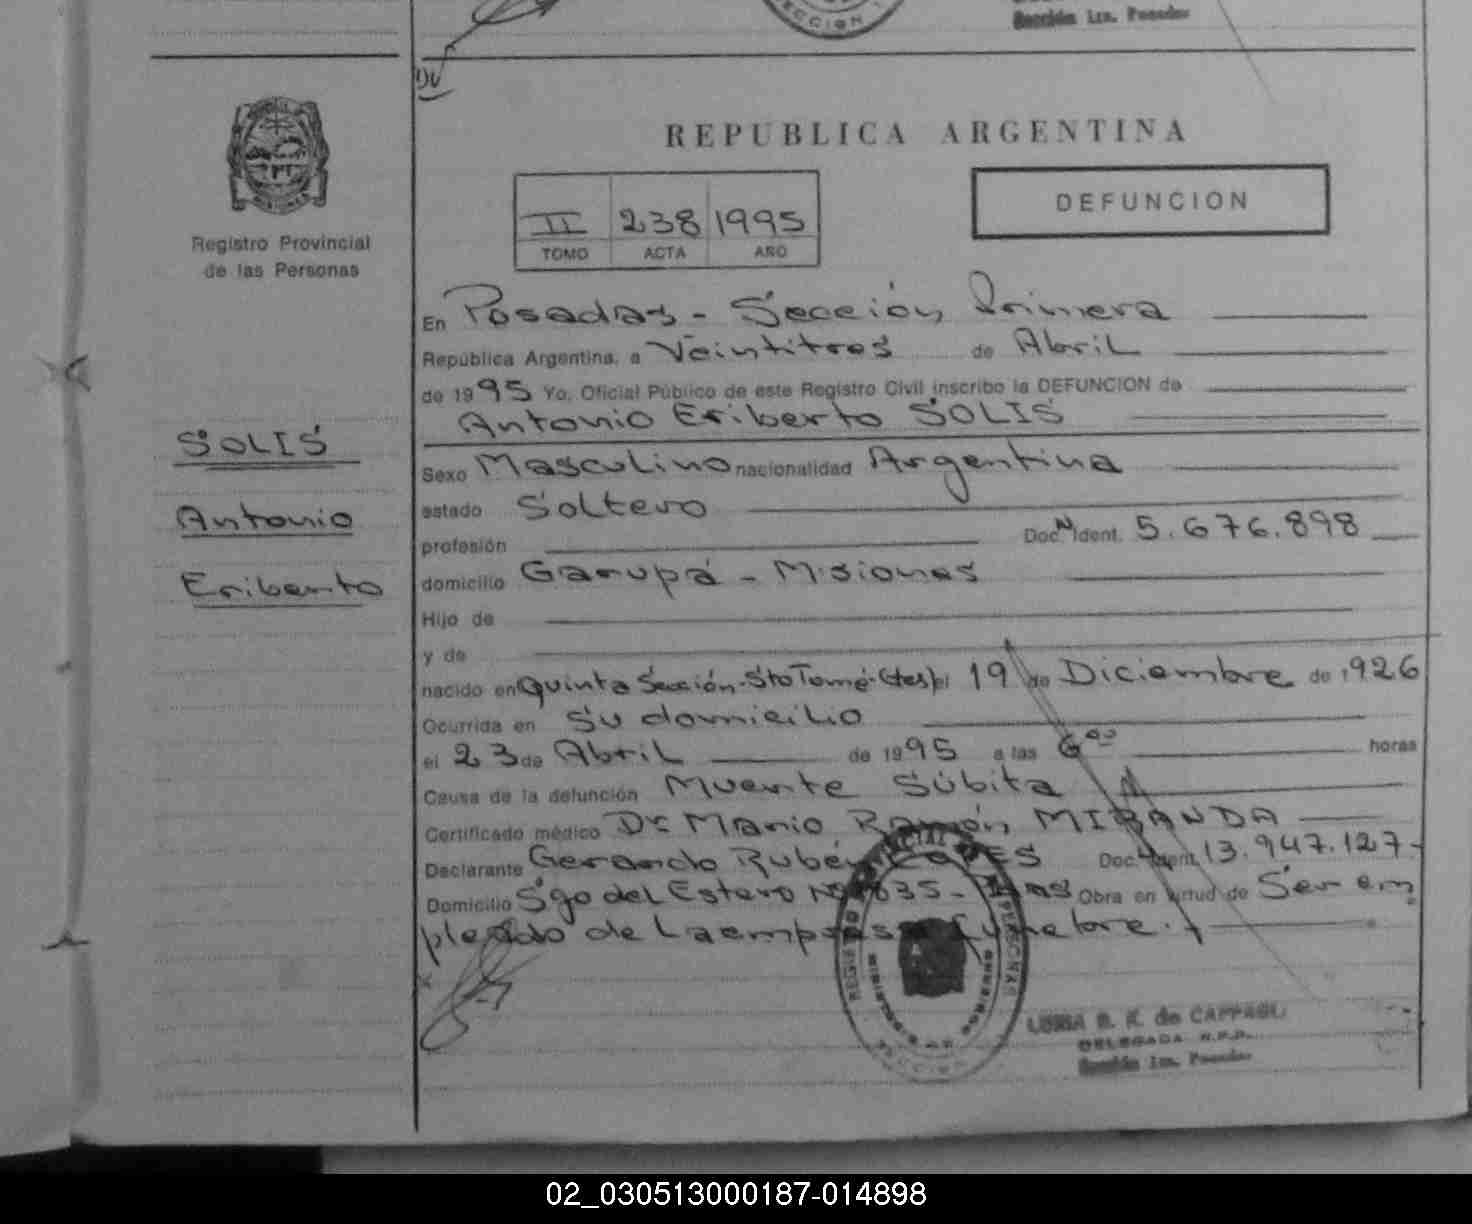 SECCION
Sección 1ra. Posadas
REPUBLICA ARGENTINA
DEFUNCION
II 238 1995
TOMO ACTA AÑO
Registro Provincial
de las Personas
En Posadas - Sección Primera
República Argentina, a Veintitres de Abril
de 1995 Yo, Oficial Público de este Registro Civil inscribo la DEFUNCION de
Antonio Eriberto SOLIS
SOLIS
Antonio
Eriberto
Sexo Masculino nacionalidad Argentina
estado Soltero
profesión Doc. N Ident. 5.676.898
domicilio Garupá - Misiones
Hijo de
y de
nacido en Quinta Sección - Sto Tomé - Ctes) el 19 de Diciembre de 1926
Ocurrida en Su domicilio
el 23 de Abril de 1995 a las 6 00 horas
Causa de la defunción Muerte Súbita
Certificado médico Dr Mario Ramón MIRANDA
Declarante Gerardo Rubén Doc. Ident. 13.947.127-
Domicilio Sgo del Estero Nº Obra en virtud de Ser em
pleado de La empresa fúnebre.
DELEGADA R.P.P.
Sección 1ra. Posadas
02_030513000187-014898